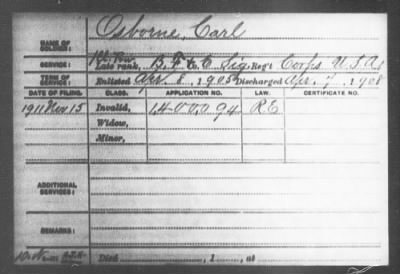 Osborne, Carl
NAME OF SOLDIER:
SERVICE: Late rank, B, F & E Sig. Reg't Corps U.S.A.
TERM OF SERVICE: Enlisted Apr. 8, 1905 Discharged Apr. 7, 1908
DATE OF FILING. CLASS. APPLICATION NO. LAW. CERTIFICATE NO.
1911 Nov 15 Invalid, 1400094 R E
Widow,
Minor,
ADDITIONAL SERVICES:
REMARKS:
Died , 1 , at